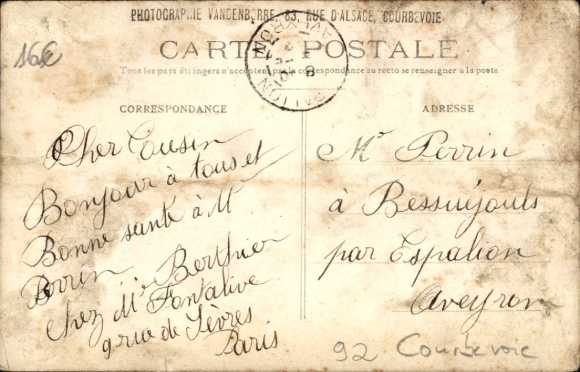 PHOTOGRAPHIE VANDENBORRE, 83, RUE D'ALSACE, COURBEVOIE
16€
CARTE POSTALE
Tous les pays étrangers n'acceptent pas la correspondance au recto se renseigner à la poste
CORRESPONDANCE
Cher Cousin
Bonjour à tous et
Bonne santé à Mr
Perrin
Mr Berthier
Chez Mr Fontalive
9 rue de Sèvres
Paris
ADRESSE
Mr Perrin
à Bessuéjouls
par Espalion
Aveyron
92 Courbevoie